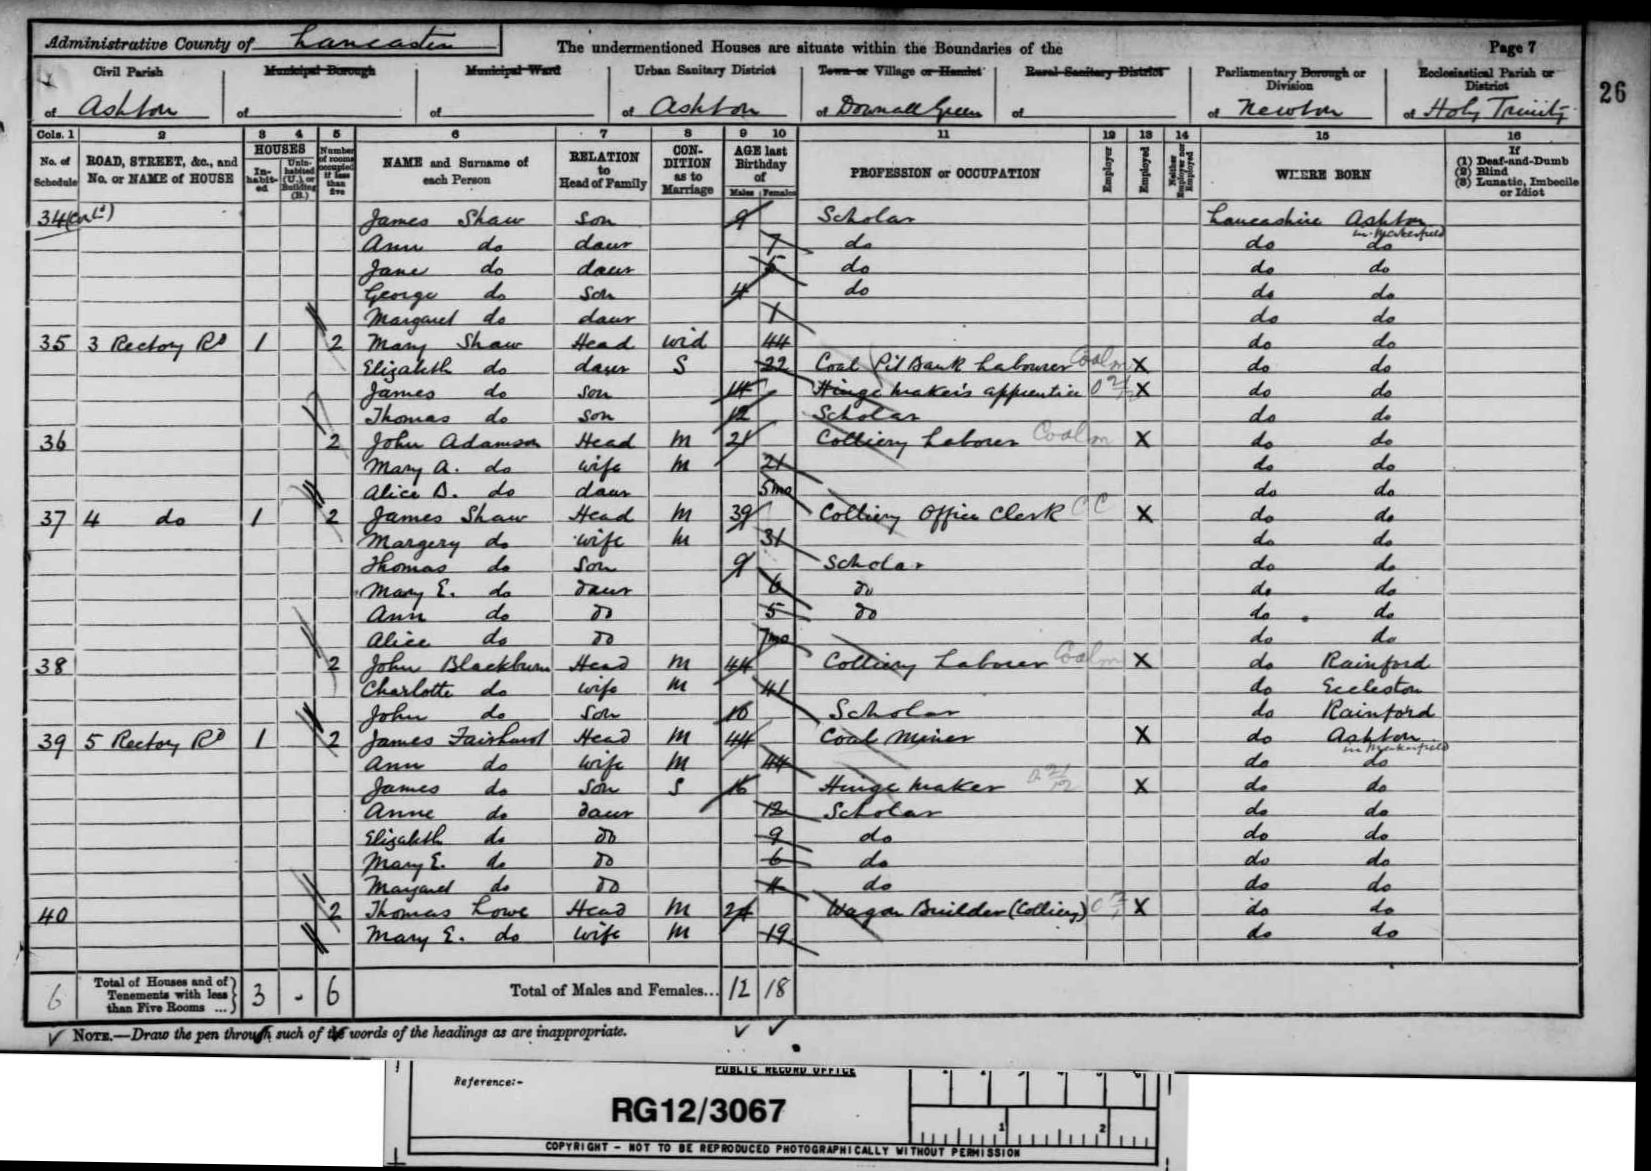 Administrative County of Lancaster The undermentioned Houses are situate within the Boundaries of the Page 7
Civil Parish Municipal Borough Municipal Ward Urban Sanitary District Town or Village or Hamlet Rural Sanitary District Parliamentary Borough or Division Ecclesiastical Parish or District
of Ashton of of of Ashton of Downall Green of of Newton of Holy Trinity 26
Cols. 1 2 3 4 5 6 7 8 9 10 11 12 13 14 15 16
No. of Schedule ROAD, STREET, &c., and No. or NAME of HOUSE HOUSES Inhabited Uninhabited (U.), or Building (B.) Number of rooms occupied if less than five NAME and Surname of each Person RELATION to Head of Family CONDITION as to Marriage AGE last Birthday of Males Females PROFESSION or OCCUPATION Employer Employed Neither Employer nor Employed WHERE BORN If (1) Deaf-and-Dumb (2) Blind (3) Lunatic, Imbecile or Idiot
34 (Contd) James Shaw son 9 Scholar Lancashire Ashton in Makerfield
Ann do daur 7 do do do
Jane do daur 5 do do do
George do son 4 do do do
Margaret do daur 1 do do
35 3 Rectory Rd 1 2 Mary Shaw Head wid 44 do do
Elizabeth do daur S 22 Coal Pit Bank Labourer Coal m X do do
James do son 14 Hinge maker's apprentice X do do
Thomas do son 12 Scholar do do
36 2 John Adamson Head M 21 Colliery Laborer Coal m X do do
Mary A. do wife M 21 do do
Alice B. do daur 5mo do do
37 4 do 1 2 James Shaw Head M 39 Colliery Office Clerk CC X do do
Margery do wife M 31 do do
Thomas do Son 9 Scholar do do
Mary E. do daur 6 do do do
Ann do do 5 do do do
Alice do do 7mo do do
38 2 John Blackburn Head M 44 Colliery Laborer Coal m X do Rainford
Charlotte do wife M 41 do Eccleston
John do Son 10 Scholar do Rainford
39 5 Rectory Rd 1 2 James Fairhurst Head M 44 Coal Miner X do Ashton in Makerfield
Ann do wife M 44 do do
James do son S 16 Hinge Maker X do do
Anne do daur 12 Scholar do do
Elizabeth do do 9 do do do
Mary E. do do 6 do do do
Margaret do do 4 do do do
40 2 Thomas Lowe Head M 24 Wagon Builder (Colliery) X do do
Mary E. do wife M 19 do do
6 Total of Houses and of Tenements with less than Five Rooms ... 3 - 6 Total of Males and Females... 12 18
NOTE.—Draw the pen through such of the words of the headings as are inappropriate.
PUBLIC RECORD OFFICE
Reference:-
RG12/3067
1 2
COPYRIGHT - NOT TO BE REPRODUCED PHOTOGRAPHICALLY WITHOUT PERMISSION